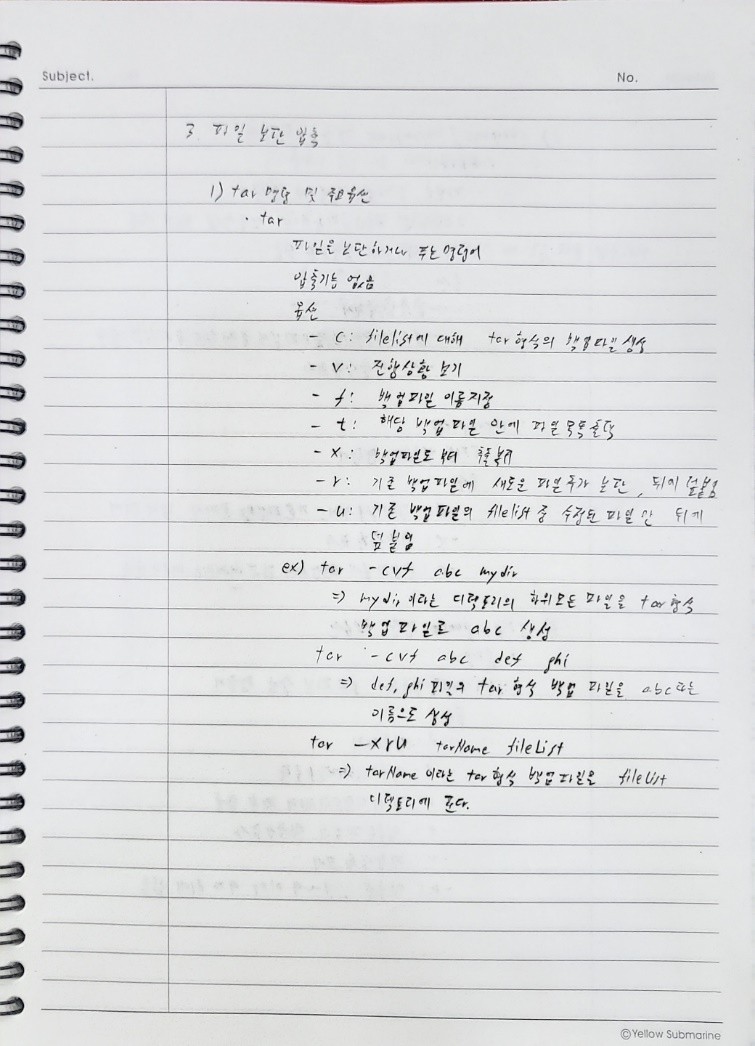 Subject.
No.
3 파일 보관 압축
1) tar 명령 및 주요옵션
· tar
파일을 보관하거나 푸는 명령어
압축기능 없음
옵션
- c: filelist에 대해 tar형식의 백업파일 생성
- v: 진행상황 보기
- f: 백업파일 이름지정
- t: 해당 백업파일 안에 파일목록출력
- x: 백업파일로 부터
- r: 기존 백업파일에 새로운 파일 추가 보관, 뒤에 덮붙임
- u: 기존 백업파일의 filelist 중 수정된 파일만 뒤에
덮붙임
ex) tar -cvf abc mydir
=> mydir 이라는 디렉토리의 하위모든 파일을 tar형식
백업파일로 abc 생성
tar -cvf abc def ghi
=> def, ghi 파일의 tar 형식 백업 파일을 abc라는
이름으로 생성
tar -xru tarName fileList
=> tarName 이라는 tar형식 백업파일을 fileList
디렉토리에 푼다.
©Yellow Submarine